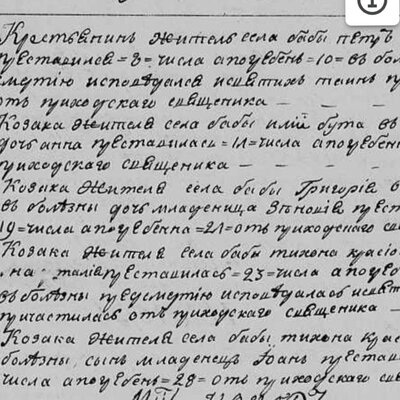 Крестьянинъ житель села бабы петръ
преставился =8= числа а погребенъ =10= въ бол
смертию исповѣдался и святихъ таинъ п
отъ приходскаго священика — — —
Козака жителя села бабы илiи бута в
дочь анна преставилась =11= числа а погребен
приходскаго священика — — — —
Козака жителя села бабы Григорiя в
въ болѣзны дочь младеница Зѣновiя прест
19= числа а погребенна =21= отъ приходскаго св
Козака жителя села бабы тихона красю
преставилась =23= числа а погреб
въ болѣзны предсмертiю исповѣдалась и свят
причастилась отъ приходскаго священика —
Козака жителя села бабы тихона крас
болѣзны сынъ младенецъ Iоанъ престав
числа а погребенъ =28= отъ приходскаго свя